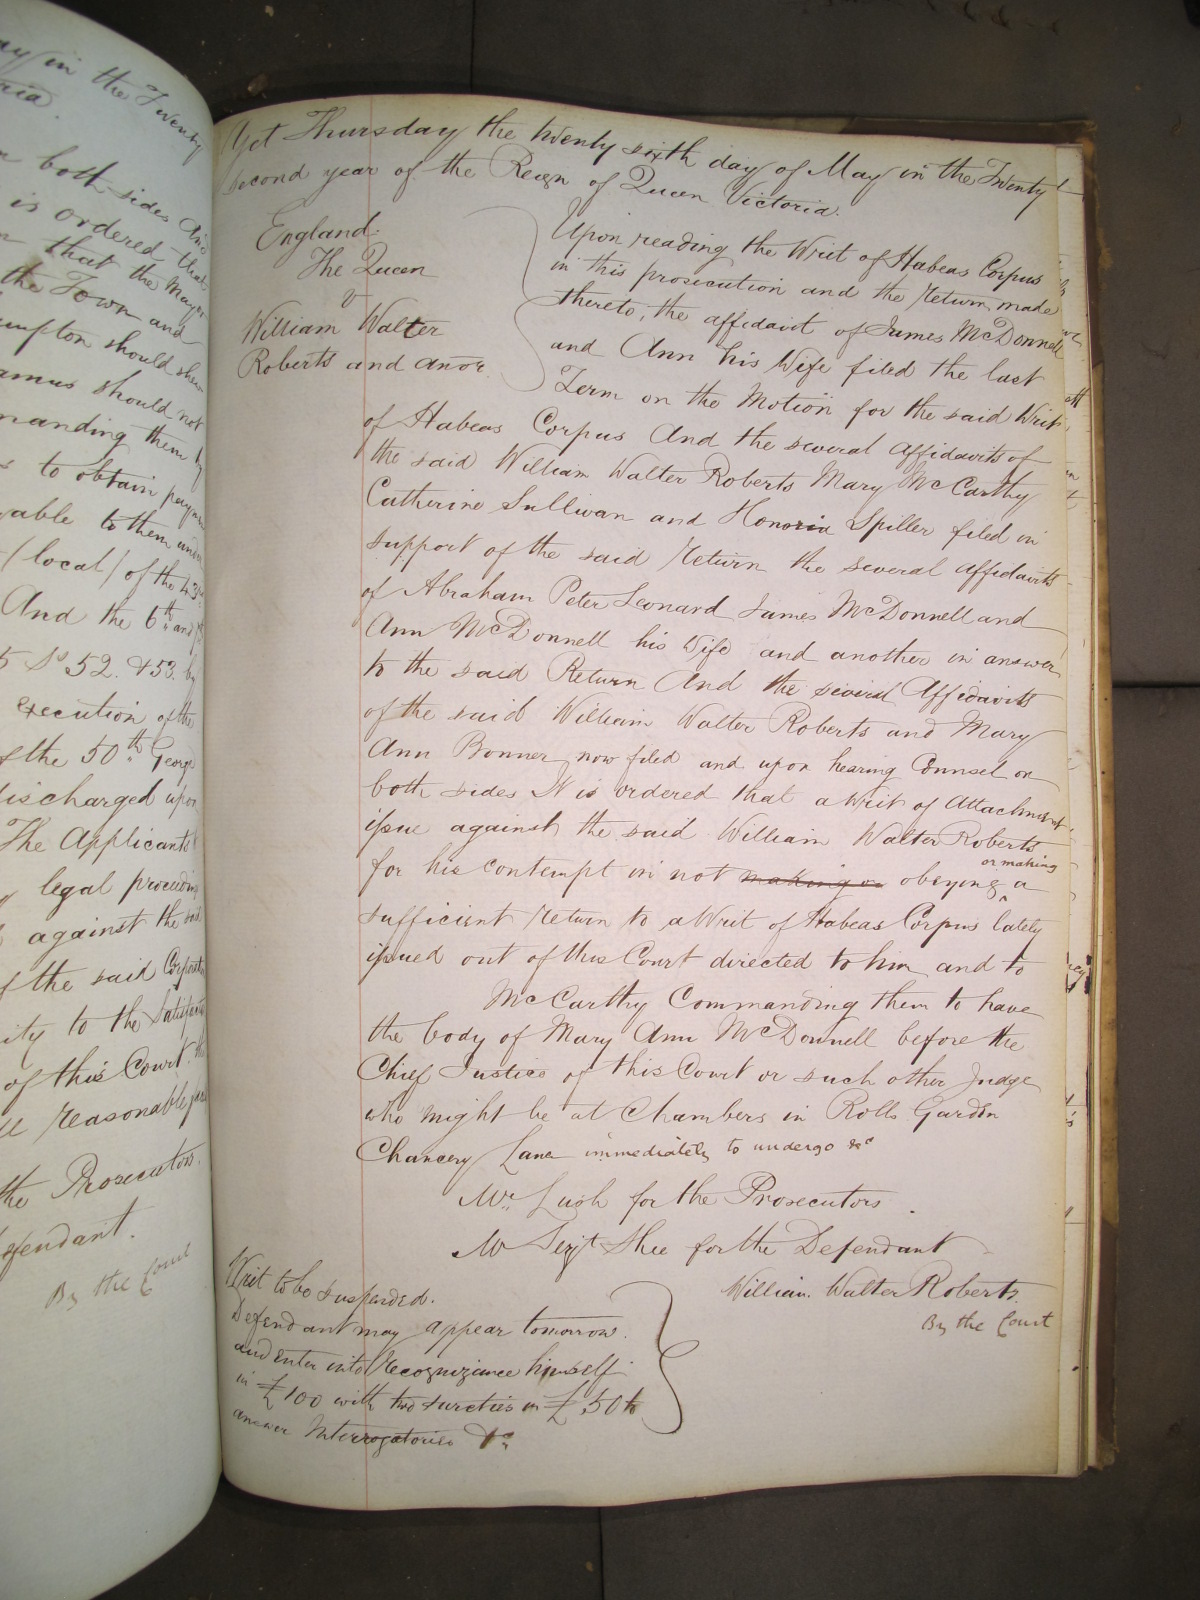 ay in the Twenty
both sides And
is ordered that
that the Mayor
the Town and
umpton should shew
amus should not
manding them by
to obtain paym
yable to them under
(local) of the 43rd
And the 6th and
52. & 53. by
execution of the
the 50th George
discharged upon
The Applicants
legal proceeding
against the said
of the said Corporati
ity to the Satisfacti
of this Court
ll reasonable
the Prosecutors.
efendant.
By the Court
Yet Thursday the twenty sixth day of May in the Twenty
second year of the Reign of Queen Victoria.
England.
The Queen
v
William Walter
Roberts and anor.
Upon reading the Writ of Habeas Corpus
in this prosecution and the return made
thereto, the affidavit of James McDonnell
and Ann his Wife filed the last
Term on the Motion for the said Writ
of Habeas Corpus And the several Affidavits of
the said William Walter Roberts Mary McCarthy
Catherine Sullivan and Honoria Spiller filed in
support of the said return the several affidavits
of Abraham Peter Leonard James McDonnell and
Ann McDonnell his Wife and another in answer
to the said Return And the several Affidavits
of the said William Walter Roberts and Mary
Ann Bonner now filed and upon hearing Counsel on
both sides It is ordered that a Writ of Attachment
issue against the said William Walter Roberts
for his contempt in not making or obeying or making a
sufficient return to a Writ of Habeas Corpus lately
issued out of this Court directed to him and to
McCarthy Commanding them to have
the body of Mary Ann McDonnell before the
Chief Justice of this Court or such other Judge
who might be at Chambers in Rolls Garden
Chancery Lane immediately to undergo &c
Mr. Lush for the Prosecutors.
Mr Serjt Shee for the Defendant
William Walter Roberts.
By the Court
Writ to be suspended.
Defendant may appear tomorrow.
and enter into recognizance himself
in £100 with two sureties in £50 to
answer Interrogatories &c.